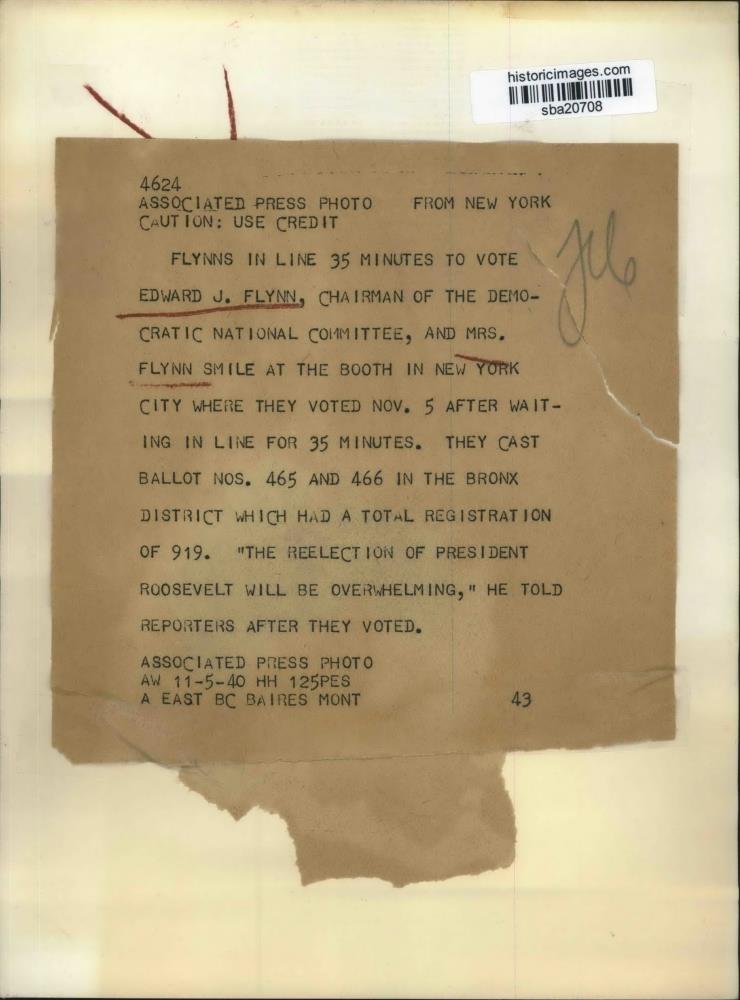 historicimages.com
sba20708
4624
ASSOCIATED PRESS PHOTO FROM NEW YORK
CAUTION: USE CREDIT
FLYNNS IN LINE 35 MINUTES TO VOTE
EDWARD J. FLYNN, CHAIRMAN OF THE DEMO-
CRATIC NATIONAL COMMITTEE, AND MRS.
FLYNN SMILE AT THE BOOTH IN NEW YORK
CITY WHERE THEY VOTED NOV. 5 AFTER WAIT-
ING IN LINE FOR 35 MINUTES. THEY CAST
BALLOT NOS. 465 AND 466 IN THE BRONX
DISTRICT WHICH HAD A TOTAL REGISTRATION
OF 919. "THE REELECTION OF PRESIDENT
ROOSEVELT WILL BE OVERWHELMING," HE TOLD
REPORTERS AFTER THEY VOTED.
ASSOCIATED PRESS PHOTO
AW 11-5-40 HH 125PES
A EAST BC BAIRES MONT 43